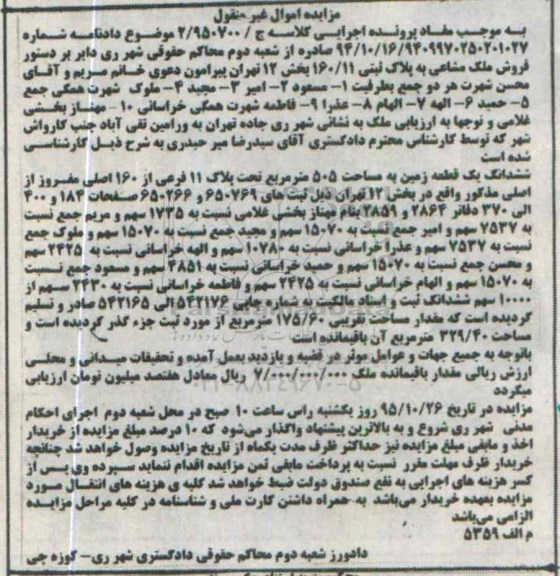 مزایده اموال غیر منقول
به موجب مفاد پرونده اجرایی کلاسه ج / ۲/۹۵۰۷۰۰ موضوع دادنامه شماره
۹۴/۱۰/۱۶/۹۴۰۹۹۷۰۲۵۰۲۰۱۰۲۷ صادره از شعبه دوم محاکم حقوقی شهر ری دایر بر دستور
فروش ملک مشاعی به پلاک ثبتی ۱۶۰/۱۱ بخش ۱۲ تهران پیرامون دعوی خانم مریم و آقای
محسن شهرت هر دو جمع بطرفیت ۱- مسعود ۲- امیر ۳- مجید ۴- ملوک شهرت همگی جمع
۵- حمید ۶- الهه ۷- الهام ۸- عذرا ۹- فاطمه شهرت همگی خراسانی ۱۰ - مهناز بخشی
غلامی و توجها به ارزیابی ملک به نشانی شهر ری جاده تهران به ورامین تقی آباد جنب کاروانی
شهر که توسط کارشناس محترم دادگستری آقای سیدرضا میر حیدری به شرح ذیل کارشناسی
شده است
ششدانگ یک قطعه زمین به مساحت ۵۰۵ مترمربع تحت پلاک ۱۱ فرعی از ۱۶۰ اصلی مفروز از
اصلی مذکور واقع در بخش ۱۲ تهران ذیل ثبت های ۶۵۰۷۶۹ و ۶۵۰۲۶۶ صفحات ۱۸۴ و ۴۰۰
الی ۳۷۰ دفاتر ۲۸۶۴ و ۲۸۵۹ بنام مهناز بخشی غلامی نسبت به ۱۷۳۵ سهم و مریم جمع نسبت
به ۷۵۳۷ سهم و امیر جمع نسبت به ۱۵۰۷۰ سهم و مجید جمع نسبت به ۱۵۰۷۰ سهم و ملوک جمع
نسبت به ۷۵۳۷ سهم و عذرا خراسانی نسبت به ۱۰۷۸۰ سهم و الهه خراسانی نسبت به ۲۴۲۵ سهم
و محسن جمع نسبت به ۱۵۰۷۰ سهم و حمید خراسانی نسبت به ۴۸۵۱ سهم و مسعود جمع نسبت
به ۱۵۰۷۰ سهم و الهام خراسانی نسبت به ۲۴۲۵ سهم و فاطمه خراسانی نسبت به ۲۴۳۰ سهم از
۱۰۰۰۰ سهم ششدانگ ثبت و اسناد مالکیت به شماره چاپی ۵۴۲۱۷۶ الی ۵۴۲۱۶۵ صادر و تسلیم
گردیده است که مقدار مساحت تقریبی ۱۷۵/۶۰ مترمربع از مورد ثبت جزء گذر گردیده است و
مساحت ۳۲۹/۴۰ مترمربع آن باقیمانده است
باتوجه به جمیع جهات و عوامل موثر در قضیه و بازدید بعمل آمده و تحقیقات میدانی و محلی
ارزش ریالی مقدار باقیمانده ملک ۷/۰۰۰/۰۰۰/۰۰۰ ریال معادل هفتصد میلیون تومان ارزیابی
میگردد
مزایده در تاریخ ۹۵/۱۰/۲۶ روز یکشنبه راس ساعت ۱۰ صبح در محل شعبه دوم اجرای احکام
مدنی شهر ری شروع و به بالاترین پیشنهاد واگذار می‌شود که ۱۰ درصد مبلغ مزایده از خریدار
اخذ و مابقی مبلغ مزایده نیز حداکثر ظرف مدت یکماه از تاریخ مزایده وصول خواهد شد چنانچه
خریدار ظرف مهلت مقرر نسبت به پرداخت مابقی ثمن مزایده اقدام ننماید سپرده وی پس از
کسر هزینه های اجرایی به نفع صندوق دولت ضبط خواهد شد کلیه ی هزینه های انتقال مورد
مزایده بعهده خریدار می‌باشد به همراه داشتن کارت ملی و شناسنامه در کلیه مراحل مزایده
الزامی می‌باشد
م الف ۵۳۵۹
دادورز شعبه دوم محاکم حقوقی دادگستری شهر ری- کوزه چی